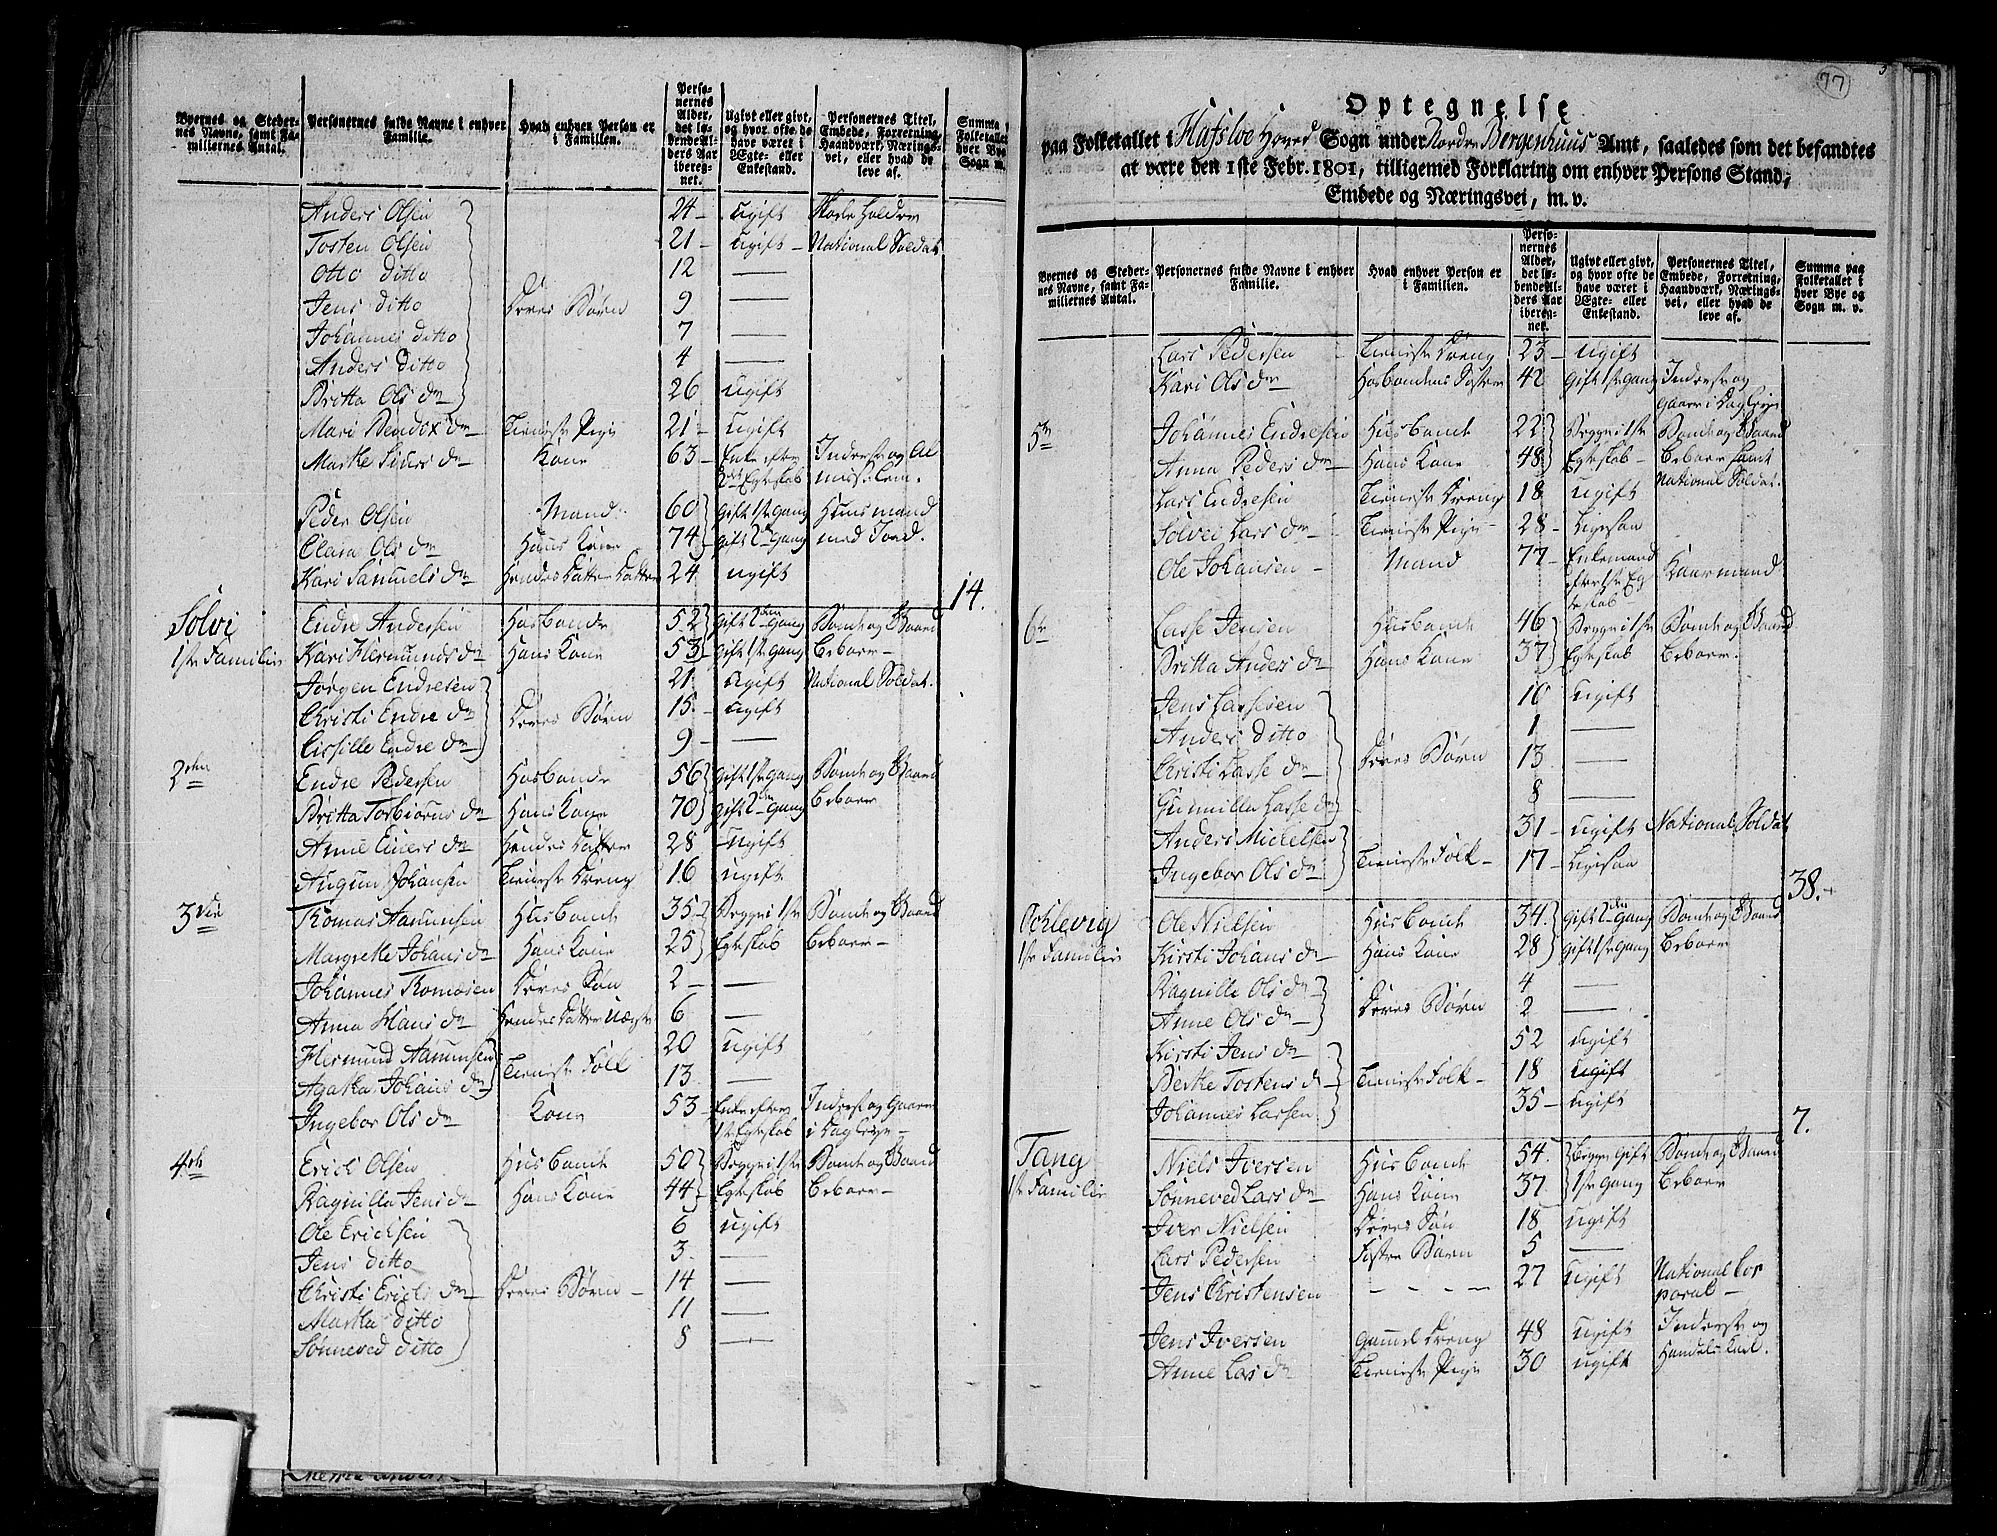 Byernes og Stedernes Navne, samt Familiernes Antal.
Personernes fulde Navne i enhver Familie.
Hvad enhver Person er i Familien.
Personernes Alder, det løbende Alders Aar iberegnet.
Ugivt eller givt, og hvor ofte de have været i Ægte- eller Enkestand.
Personernes Titel, Embede, Forretning, Haandværk, Næringsvei, eller hvad de leve af.
Summa Folketallet i hver Bye Sogn m.
Anders Olsen 24 - Ugift
Tosten Olsen 21 - Ugift - National Soldat
Otto ditto 12 —
Jens ditto Deres Børn 9 —
Johannes ditto 7 —
Anders ditto 4 —
Britta Ols dr 26 ugift
Mari Bendix dr Tieniste Pige 21 - Ugift
Marthe Siurs dr Kone 63 - Enke efter Inderste og Al
2det Egteskab misselem.
Peder Olsen Mand 60 gift 1ste gang Huusmand
Clara Ols dr Hans Kone 74 gift 2den gang med Jord.
Kari Samuels dr Hendes Datter Datter 24 ugift
14.
Solvi Endre Andersen Hosbonde 52 gift 2den gang Bonde og Gaard
1ste Familie Kari Hermunds dr Hans Kone 53 gift 1ste gang Beboer -
Jørgen Endresen 21 Ugift National Soldat.
Christi Endre dr Deres Børn 15 - ugift
Cissille Endre dr 9 - —
2den Endre Pedersen Hosbonde 56 gift 1ste gang Bonde og Gaard
Britta Torbiørns dr Hans Kone 70 gift 2den gang Beboer
Anne Einers dr Hendes Datter 28 - Ugift
Augun Johansen Tieniste Dreng 16 ugift
3die Thomas Aamundsen Husbonde 35 - Begge i 1ste Bonde og Gaard
Margrethe Johans dr Hans Kone 25 Egteskab Beboer -
Johannes Thomesen Deres Søn 2 - —
Anna Hans dr Hendes Datter Uægte 6 —
Hermund Aamunsen Tieniste Folk 20 ugift
Agatha Johans dr 13 —
Ingebor Ols dr Kone 53 - Enke efter Inderste og Gaaer
1ste Egteskab i Dagleye -
4de Erick Olsen Husbonde 50 Begge i 1ste Bonde og Gaard
Ragnilla Jens dr Hans Kone 44 - Egteskab Beboer -
Ole Ericksen 6 ugift
Jens ditto 3. —
Christi Ericks dr Deres Børn - 14 —
Martha ditto 11 —
Sønneved ditto 8 —
77
Optegnelse
paa Folketallet i Hafsloe Hoved Sogn under Nordre Bergenhuus Amt, saaledes som det befandtes
at være den 1ste Febr. 1801, tilligemed Forklaring om enhver Persons Stand,
Embede og Næringsvei, m. v.
Byernes og Stedernes Navne, samt Familiernes Antal.
Personernes fulde Navne i enhver Familie.
Hvad enhver Person er i Familien.
Personernes Alder, det løbende Alders Aar iberegnet.
Ugivt eller givt, og hvor ofte de have været i Ægte- eller Enkestand.
Personernes Titel, Embede, Forretning, Haandværk, Næringsvei, eller hvad de leve af.
Summa paa Folketallet i hver Bye og Sogn m. v.
Lars Pedersen Tieniste Dreng 23 - ugift
Kari Ols dr Hosbondens Søster 42 gift 1ste gang Inderste og
gaaer i Dagleye
5te Johannes Endresen Husbonde 22 Begge i 1ste Bonde og Gaard
Anna Peders dr Hans Kone 48 Egteskab - Beboer samt
National Soldat.
Lars Endresen Tieniste Dreng 18 ugift
Solvei Lars dr Tieniste Pige - 28 - Ligesaa
Ole Johansen - Mand 77 - Enkemand Kaarmand
efter 1ste Eg
teskab -
6te Lasse Jensen Husbonde 46 Begge i 1ste Bonde og Gaard
Britta Anders dr Hans Kone 37 Egteskab Beboer.
Jens Lassesen 16 ugift
Anders ditto 1 —
Christi Lasse dr Deres Børn 13 —
Gunnilla Lasse dr 8 —
Anders Mickelsen Tieniste Folk - 31 - ugift National Soldat
Ingebor Ols dr 17 - Ligesaa
38.
Ole Nielsen Husbonde 34. Gift 2den Gang Bonde og Gaard
1ste Familie Kirsti Johans dr Hans Kone 28 gift 1ste gang Beboer
Ragnille Ols dr Deres Børn 4 —
Anne Ols dr 2 —
Kirsti Jens dr 52 ugift
Berthe Tostens dr Tieniste Folk - 18 ugift
Johannes Larsen 35 - ugift
7.
Tang Niels Iversen Husbonde 54. Begge Gift Bonde og Gaard
1ste Familie Sønneved Lars dr Hans Kone 37. 1ste Gang Beboer
Iver Nielsen Deres Søn 18 ugift
Lars Pedersen Foster Barn 5 —
Jens Christensen - - - - 27 Ugift National Cor
poral -
Jens Iversen Gammel Dreng 48 ugift Inderste og
Anne Lars dr Tieniste Pige 30 ugift Handels Karl.